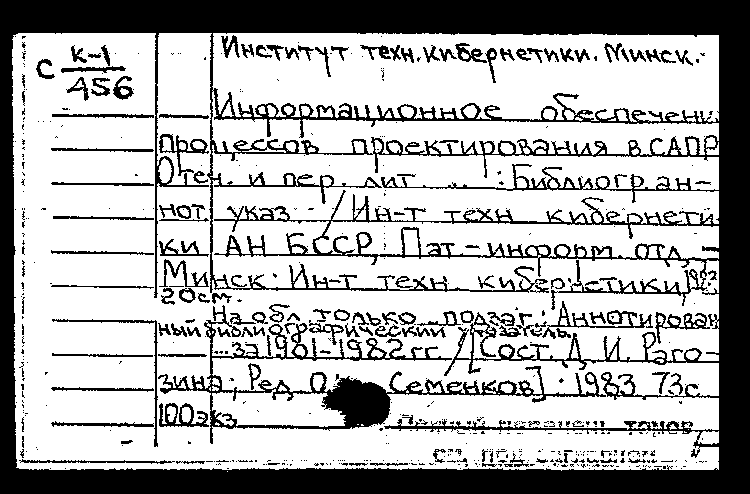 Институт техн. кибернетики. Минск.
С К-1
456
Информационное обеспечени
процессов проектирования в САПР
Отеч. и пер. лит. ... : Библиогр. ан-
нот. указ. / Ин-т техн. кибернети-
ки АН БССР, Пат.-информ. отд. –
Минск: Ин-т техн. кибернетики, 1983
20 см.
На обл. только подзаг.: Аннотирован
ный библиографический указатель
...за 1981-1982 гг. / [Сост. Д. И. Раго-
зина; Ред. О. Семенков]. 1983. 73 с
100 экз
Полный перечень томов
см. под заглавием